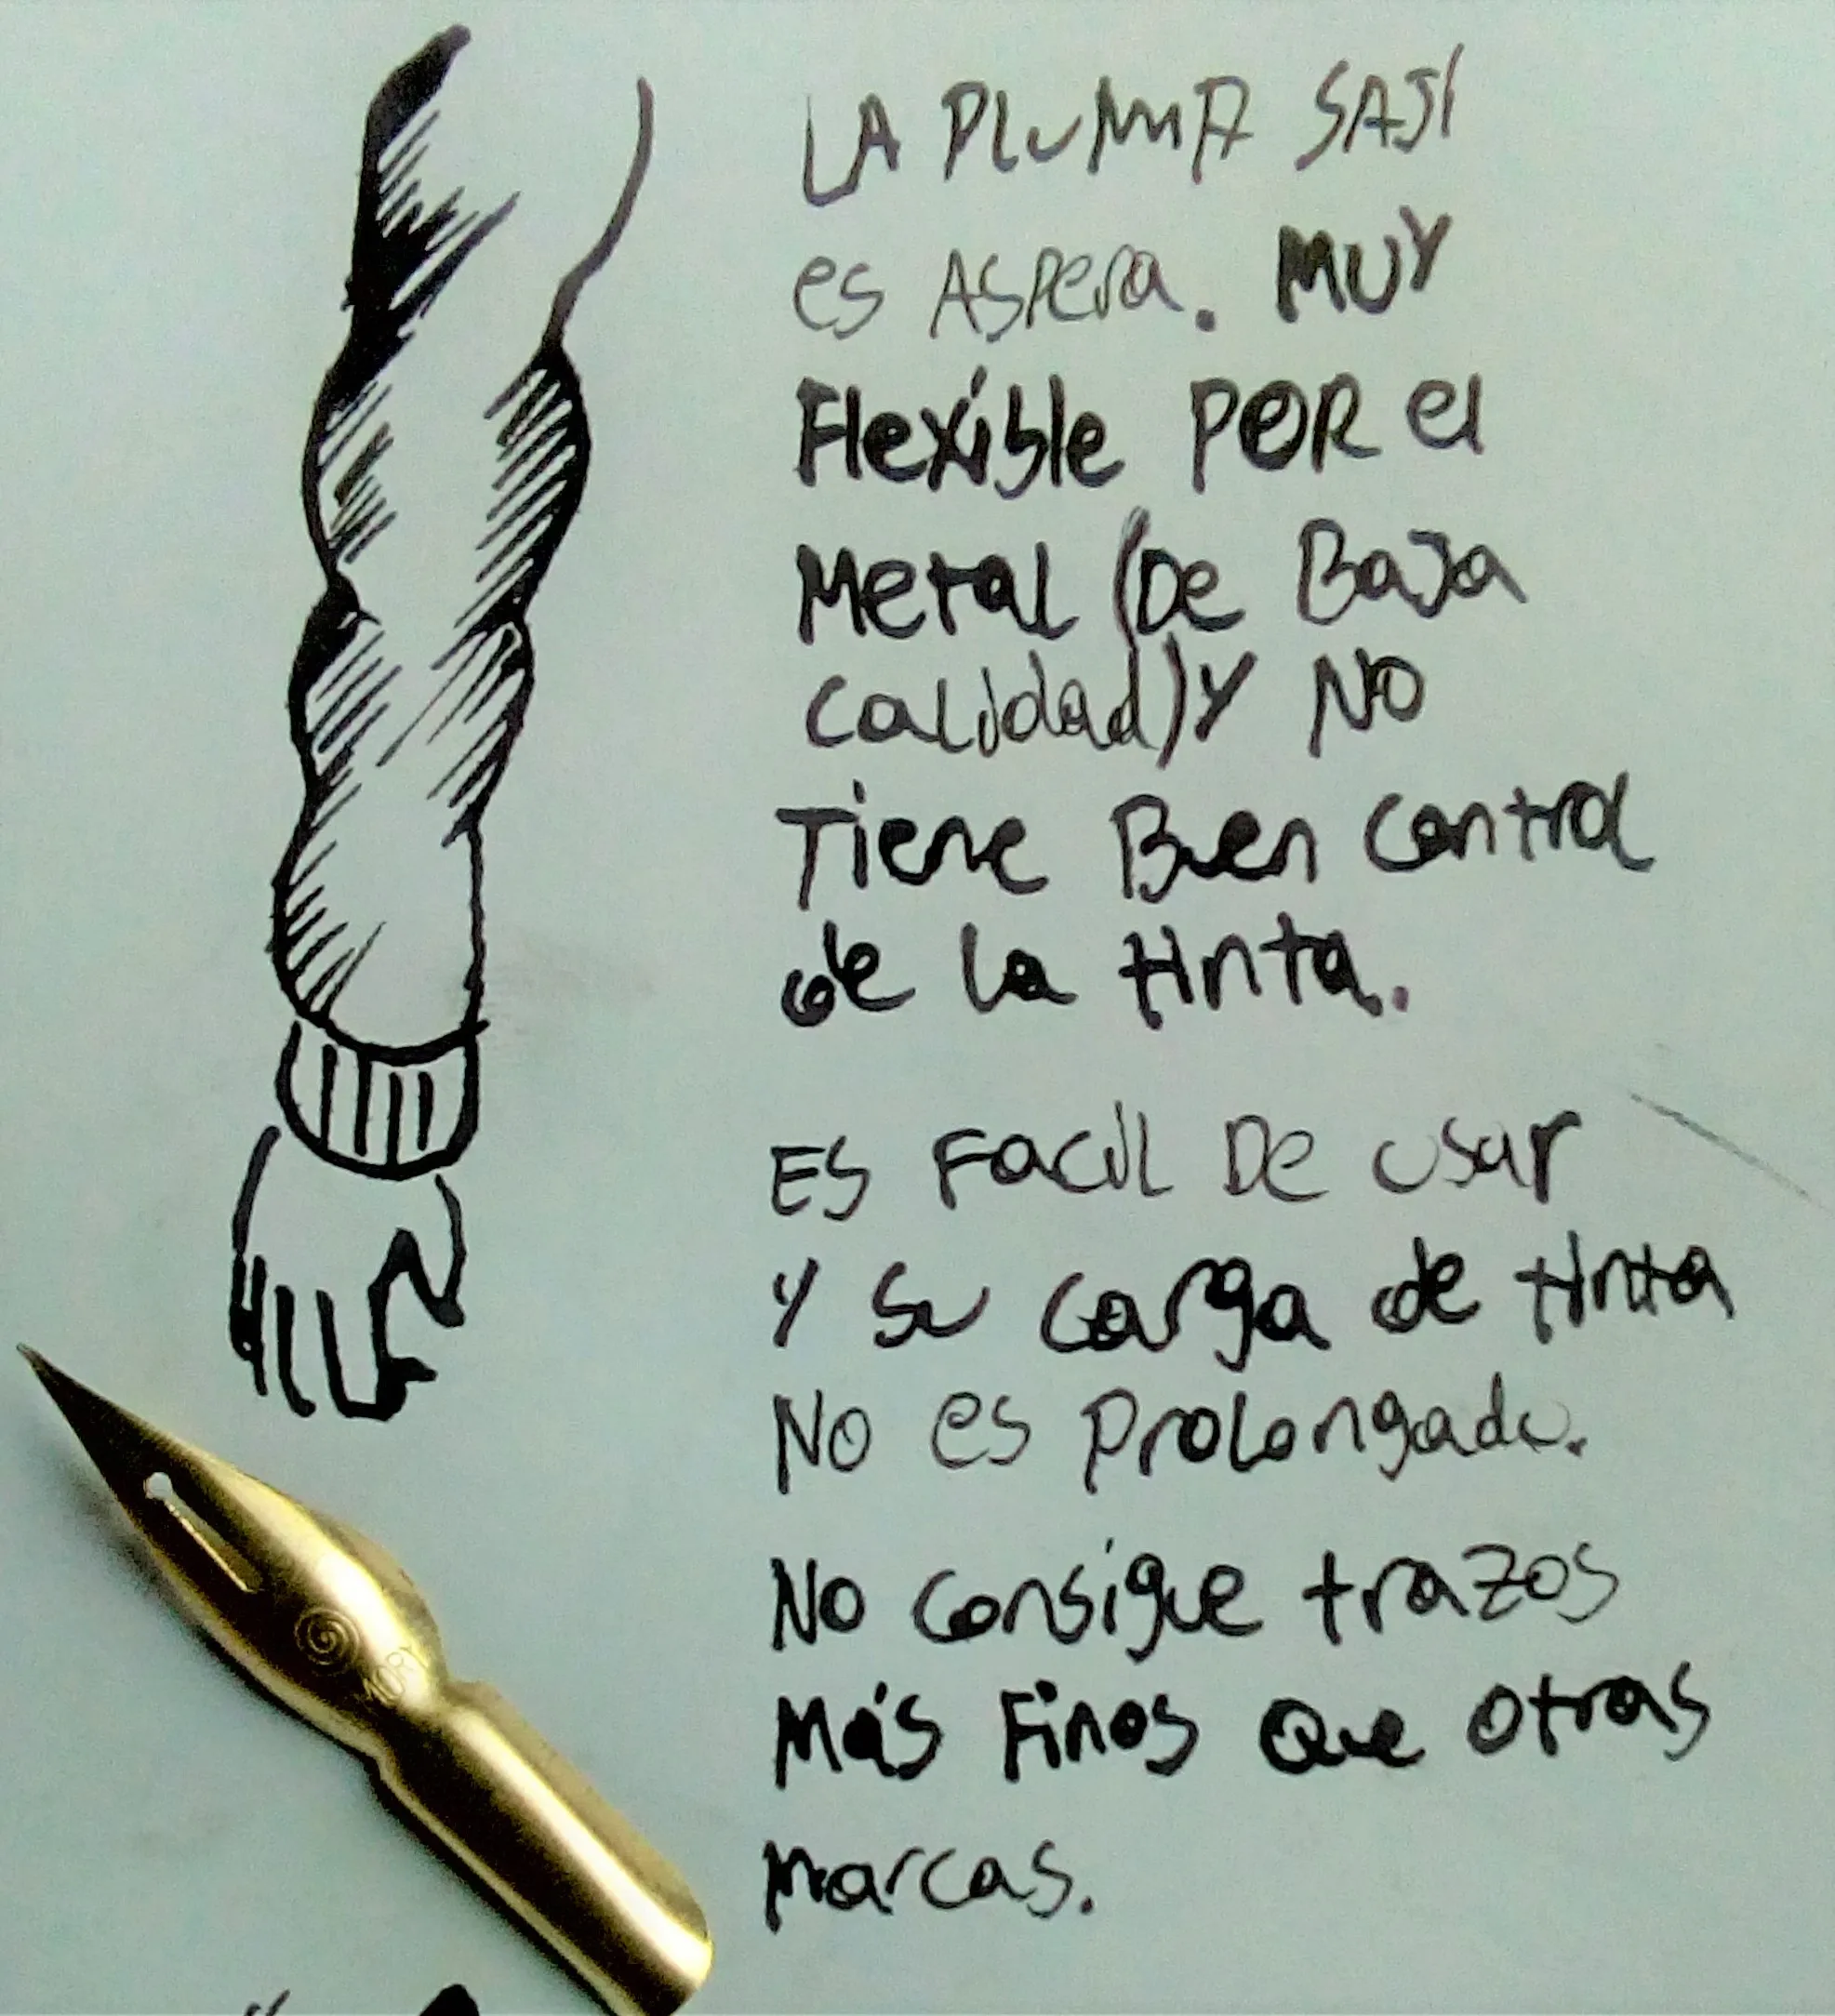 LA PLUMA SAJI
es ASPera. MUY
Flexible POR el
Metal (De BaJa
CaLidad) Y NO
Tiene Buen control
de la tinta.
ES FaciL De usar
Y Su carga de tinta
No es ProLongada.
No consigue trazos
Más Finos Que otras
Marcas.